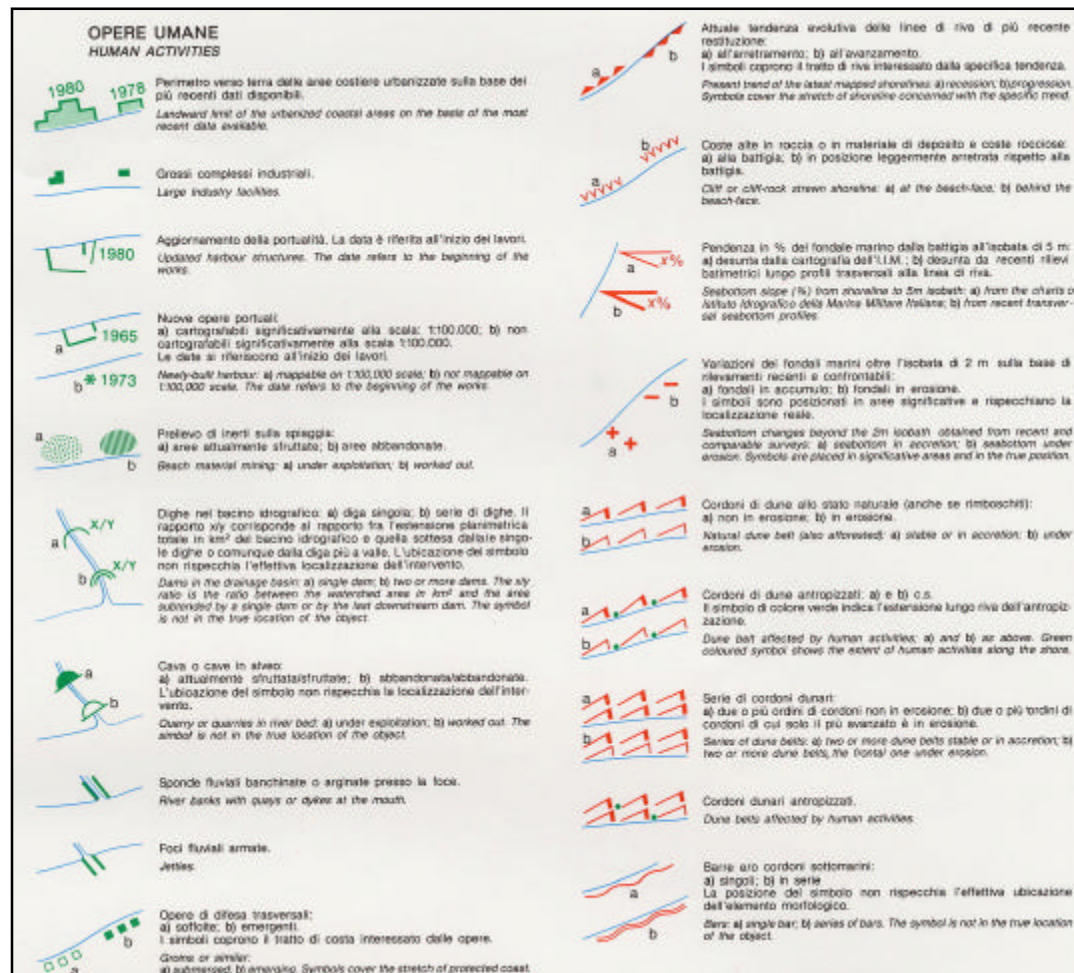 OPERE UMANE
HUMAN ACTIVITIES
1980
1978
Perimetro verso terra delle aree costiere urbanizzate sulla base dei
più recenti dati disponibili.
Landward limit of the urbanized coastal areas on the basis of the most
recent data available.
Grossi complessi industriali.
Large industry facilities.
1980
Aggiornamento della portualità. La data è riferita all'inizio dei lavori.
Updated harbour structures. The date refers to the beginning of the
works.
a
1965
b
1973
Nuove opere portuali:
a) cartografabili significativamente alla scala: 1:100.000; b) non
cartografabili significativamente alla scala 1:100.000.
Le date si riferiscono all'inizio dei lavori.
Newly-built harbour: a) mappable on 1:100,000 scale; b) not mappable on
1:100,000 scale. The date refers to the beginning of the works.
a
b
Prelievo di inerti sulla spiaggia:
a) aree attualmente sfruttate; b) aree abbandonate.
Beach material mining: a) under exploitation; b) worked out.
a
X/Y
b
X/Y
Dighe nel bacino idrografico: a) diga singola; b) serie di dighe. Il
rapporto x/y corrisponde al rapporto fra l'estensione planimetrica
totale in km² del bacino idrografico e quella sottesa dalla/e singo-
le dighe o comunque dalla diga più a valle. L'ubicazione del simbolo
non rispecchia l'effettiva localizzazione dell'intervento.
Dams in the drainage basin: a) single dam; b) two or more dams. The x/y
ratio is the ratio between the watershed area in km² and the area
subtended by a single dam or by the last downstream dam. The symbol
is not in the true location of the object.
a
b
Cava o cave in alveo:
a) attualmente sfruttata/sfruttate; b) abbandonata/abbandonate.
L'ubicazione del simbolo non rispecchia la localizzazione dell'inter-
vento.
Quarry or quarries in river bed: a) under exploitation; b) worked out. The
simbol is not in the true location of the object.
Sponde fluviali banchinate o arginate presso la foce.
River banks with quays or dykes at the mouth.
Foci fluviali armate.
Jetties.
b
a
Opere di difesa trasversali:
a) soffolte; b) emergenti.
I simboli coprono il tratto di costa interessato dalle opere.
Groins or similar:
a) submersed; b) emerging. Symbols cover the stretch of protected coast.
a
b
Attuale tendenza evolutiva delle linee di riva di più recente
restituzione:
a) all'arretramento; b) all'avanzamento.
I simboli coprono il tratto di riva interessato dalla specifica tendenza.
Present trend of the latest mapped shorelines: a) recession; b) progression.
Symbols cover the stretch of shoreline concerned with the specific trend.
b
a
Coste alte in roccia o in materiale di deposito e coste rocciose:
a) alla battigia; b) in posizione leggermente arretrata rispetto alla
battigia.
Cliff or cliff-rock strewn shoreline: a) at the beach-face; b) behind the
beach-face.
a
x%
b
x%
Pendenza in % del fondale marino dalla battigia all'isobata di 5 m:
a) desunta dalla cartografia dell'I.I.M.; b) desunta da recenti rilievi
batimetrici lungo profili trasversali alla linea di riva.
Seabottom slope (%) from shoreline to 5m isobath: a) from the charts o
Istituto Idrografico della Marina Militare Italiana; b) from recent transver-
sal seabottom profiles.
b
a
Variazioni dei fondali marini oltre l'isobata di 2 m sulla base di
rilevamenti recenti e confrontabili:
a) fondali in accumulo; b) fondali in erosione.
I simboli sono posizionati in aree significative e rispecchiano la
localizzazione reale.
Seabottom changes beyond the 2m isobath obtained from recent and
comparable surveys: a) seabottom in accretion; b) seabottom under
erosion. Symbols are placed in significative areas and in the true position.
a
b
Cordoni di dune allo stato naturale (anche se rimboschiti):
a) non in erosione; b) in erosione.
Natural dune belt (also afforested): a) stable or in accretion; b) under
erosion.
a
b
Cordoni di dune antropizzati: a) e b) c.s.
Il simbolo di colore verde indica l'estensione lungo riva dell'antropiz-
zazione.
Dune belt affected by human activities; a) and b) as above. Green
coloured symbol shows the extent of human activities along the shore.
a
b
Serie di cordoni dunari:
a) due o più ordini di cordoni non in erosione; b) due o più ordini di
cordoni di cui solo il più avanzato è in erosione.
Series of dune belts: a) two or more dune belts stable or in accretion; b)
two or more dune belts, the frontal one under erosion.
Cordoni dunari antropizzati.
Dune belts affected by human activities.
a
b
Barre e/o cordoni sottomarini:
a) singoli; b) in serie
La posizione del simbolo non rispecchia l'effettiva ubicazione
dell'elemento morfologico.
Bars: a) single bar; b) series of bars. The symbol is not in the true location
of the object.